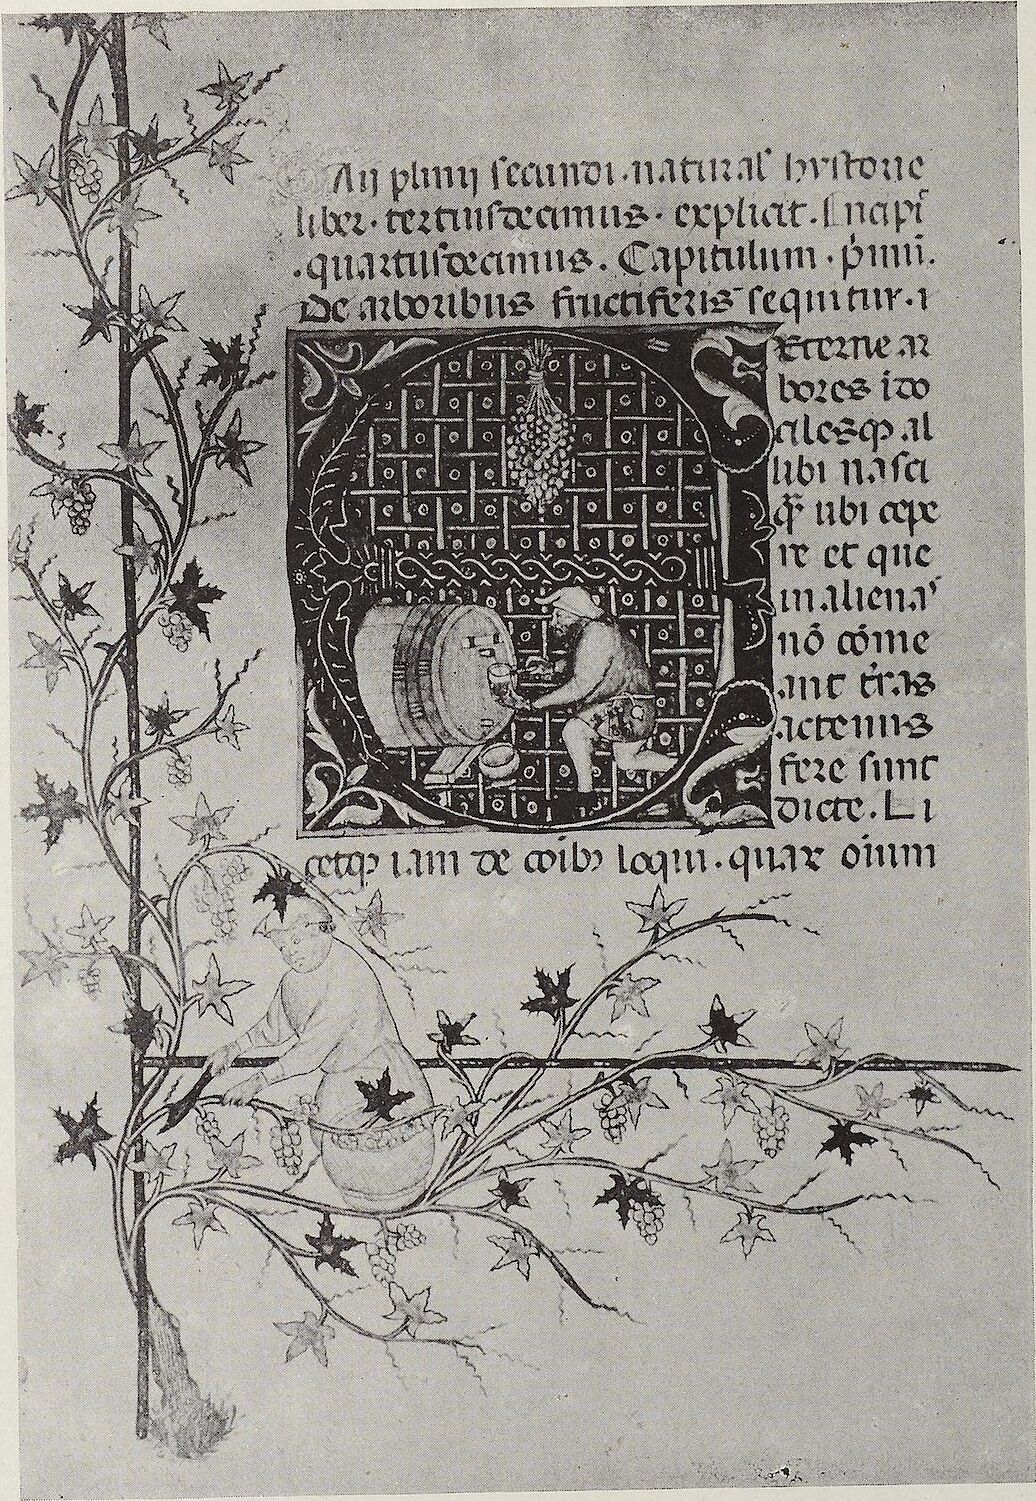 Aij plinij secundi · natural hystorie
liber · terciusdecimus · explicit · Incipi
· quartusdecimus · Capitulum · primi.
De arboribus fructiferis sequitur · i
Eterne ar
bores ido
cilesqꝫ al
libi nasci
qꝫ ubi cepe
re et que
in aliena
nō cōme
ant t̄ras
actenus
fere sunt
dicte. Li
cetqꝫ iam de coibꝫ loqui · quar oīum